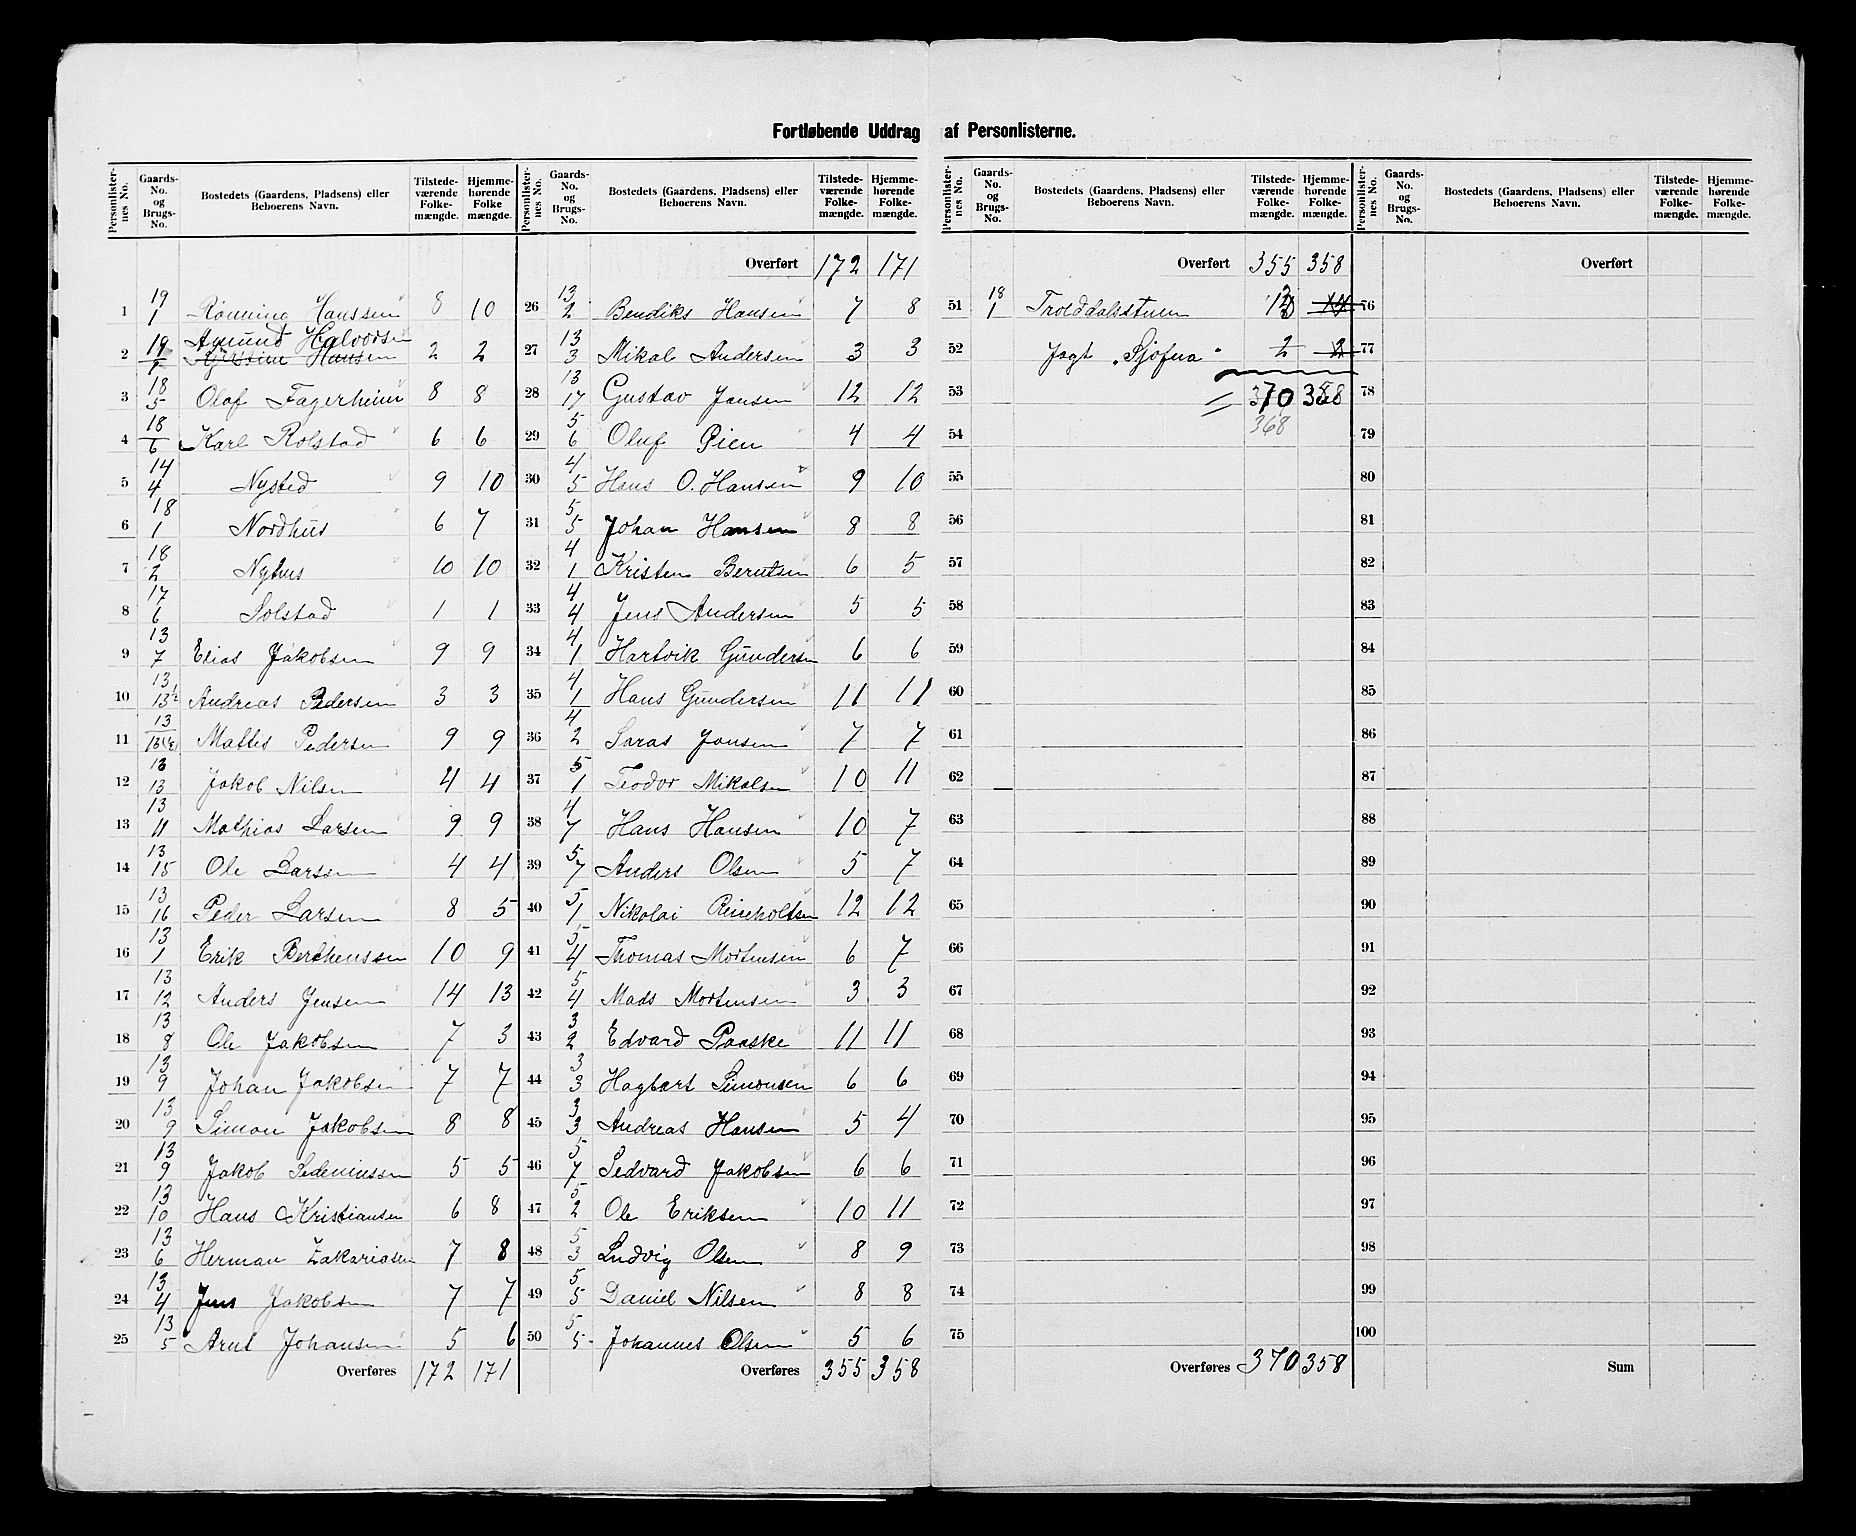 Fortløbende Uddrag af Personlisterne.
Personlisternes No. | Gaards-No. og Brugs-No. | Bostedets (Gaardens, Pladsens) eller Beboerens Navn. | Tilstedeværende Folkemængde. | Hjemmehørende Folkemængde.
1 | 19/1 | Rønning Hanssen | 8 | 10
2 | 19/1 | Amund Halvorsen | 2 | 2
3 | 18/5 | Olaf Fagerheim | 8 | 8
4 | 18/6 | Karl Rolstad | 6 | 6
5 | 14/4 | Nysted | 9 | 10
6 | 18/1 | Nordhus | 6 | 7
7 | 18/2 | Nyhus | 10 | 10
8 | 17/6 | Solstad | 1 | 1
9 | 13/7 | Elias Jakobsen | 9 | 9
10 | 13/13½ | Andreas Pedersen | 3 | 3
11 | 13/13(½) | Mattis Pedersen | 9 | 9
12 | 13/13 | Jakob Nilsen | 4 | 4
13 | 13/11 | Mathias Larsen | 9 | 9
14 | 13/15 | Ole Larsen | 4 | 4
15 | 13/16 | Peder Larsen | 8 | 5
16 | 13/1 | Erik Berthenssen | 10 | 9
17 | 13/12 | Anders Jensen | 14 | 13
18 | 13/8 | Ole Jakobsen | 7 | 3
19 | 13/9 | Johan Jakobsen | 7 | 7
20 | 13/9 | Simon Jakobsen | 8 | 8
21 | 13/9 | Jakob | 5 | 5
22 | 13/10 | Hans Kristiansen | 6 | 8
23 | 13/6 | Herman Zakariasen | 7 | 8
24 | 13/4 | Jens Jakobsen | 7 | 7
25 | 13/5 | Arnt Johansen | 5 | 6
Overføres | 172 | 171
Personlisternes No. | Gaards-No. og Brugs-No. | Bostedets (Gaardens, Pladsens) eller Beboerens Navn. | Tilstedeværende Folkemængde. | Hjemmehørende Folkemængde.
Overført | 172 | 171
26 | 13/2 | Bendiks Hansen | 7 | 8
27 | 13/3 | Mikal Andersen | 3 | 3
28 | 13/17 | Gustav Jansen | 12 | 12
29 | 5/6 | Oluf Pien | 4 | 4
30 | 4/5 | Hans O. Hansen | 9 | 10
31 | 5/5 | Johan Hansen | 8 | 8
32 | 4/1 | Kristen Berntsen | 6 | 5
33 | 4/4 | Jens Andersen | 5 | 5
34 | 4/1 | Hartvik Gundersen | 6 | 6
35 | 4/1 | Hans Gundersen | 11 | 11
36 | 4/2 | Saras Jonsen | 7 | 7
37 | 5/1 | Teodor Mikalsen | 10 | 11
38 | 4/7 | Hans Hansen | 10 | 7
39 | 5/7 | Anders Olsen | 5 | 7
40 | 5/1 | Nikolai Reinholtsen | 12 | 12
41 | 5/4 | Thomas Mortensen | 6 | 7
42 | 5/4 | Mads Mortensen | 3 | 3
43 | 3/2 | Edvard Paaske | 11 | 11
44 | 3/3 | Hagbart Simonsen | 6 | 6
45 | 3/3 | Andreas Hansen | 5 | 4
46 | 5/7 | Sedvard Jakobsen | 6 | 6
47 | 5/2 | Ole Eriksen | 10 | 11
48 | 5/3 | Ludvig Olsen | 8 | 9
49 | 5/5 | Daniel Nilsen | 8 | 8
50 | 5/5 | Johannes Olsen | 5 | 6
Overføres | 355 | 358
Personlisternes No. | Gaards-No. og Brugs-No. | Bostedets (Gaardens, Pladsens) eller Beboerens Navn. | Tilstedeværende Folkemængde. | Hjemmehørende Folkemængde.
Overført | 355 | 358
51 | 18/1 | Trolddalsstuen | 13
52 | Jagt "Sjøfna" | 2 | 2
53 | 370 | 358
54 | 368
55
56
57
58
59
60
61
62
63
64
65
66
67
68
69
70
71
72
73
74
75
Overføres | 370 | 358
Personlisternes No. | Gaards-No. og Brugs-No. | Bostedets (Gaardens, Pladsens) eller Beboerens Navn. | Tilstedeværende Folkemængde. | Hjemmehørende Folkemængde.
Overført
76
77
78
79
80
81
82
83
84
85
86
87
88
89
90
91
92
93
94
95
96
97
98
99
100
Sum